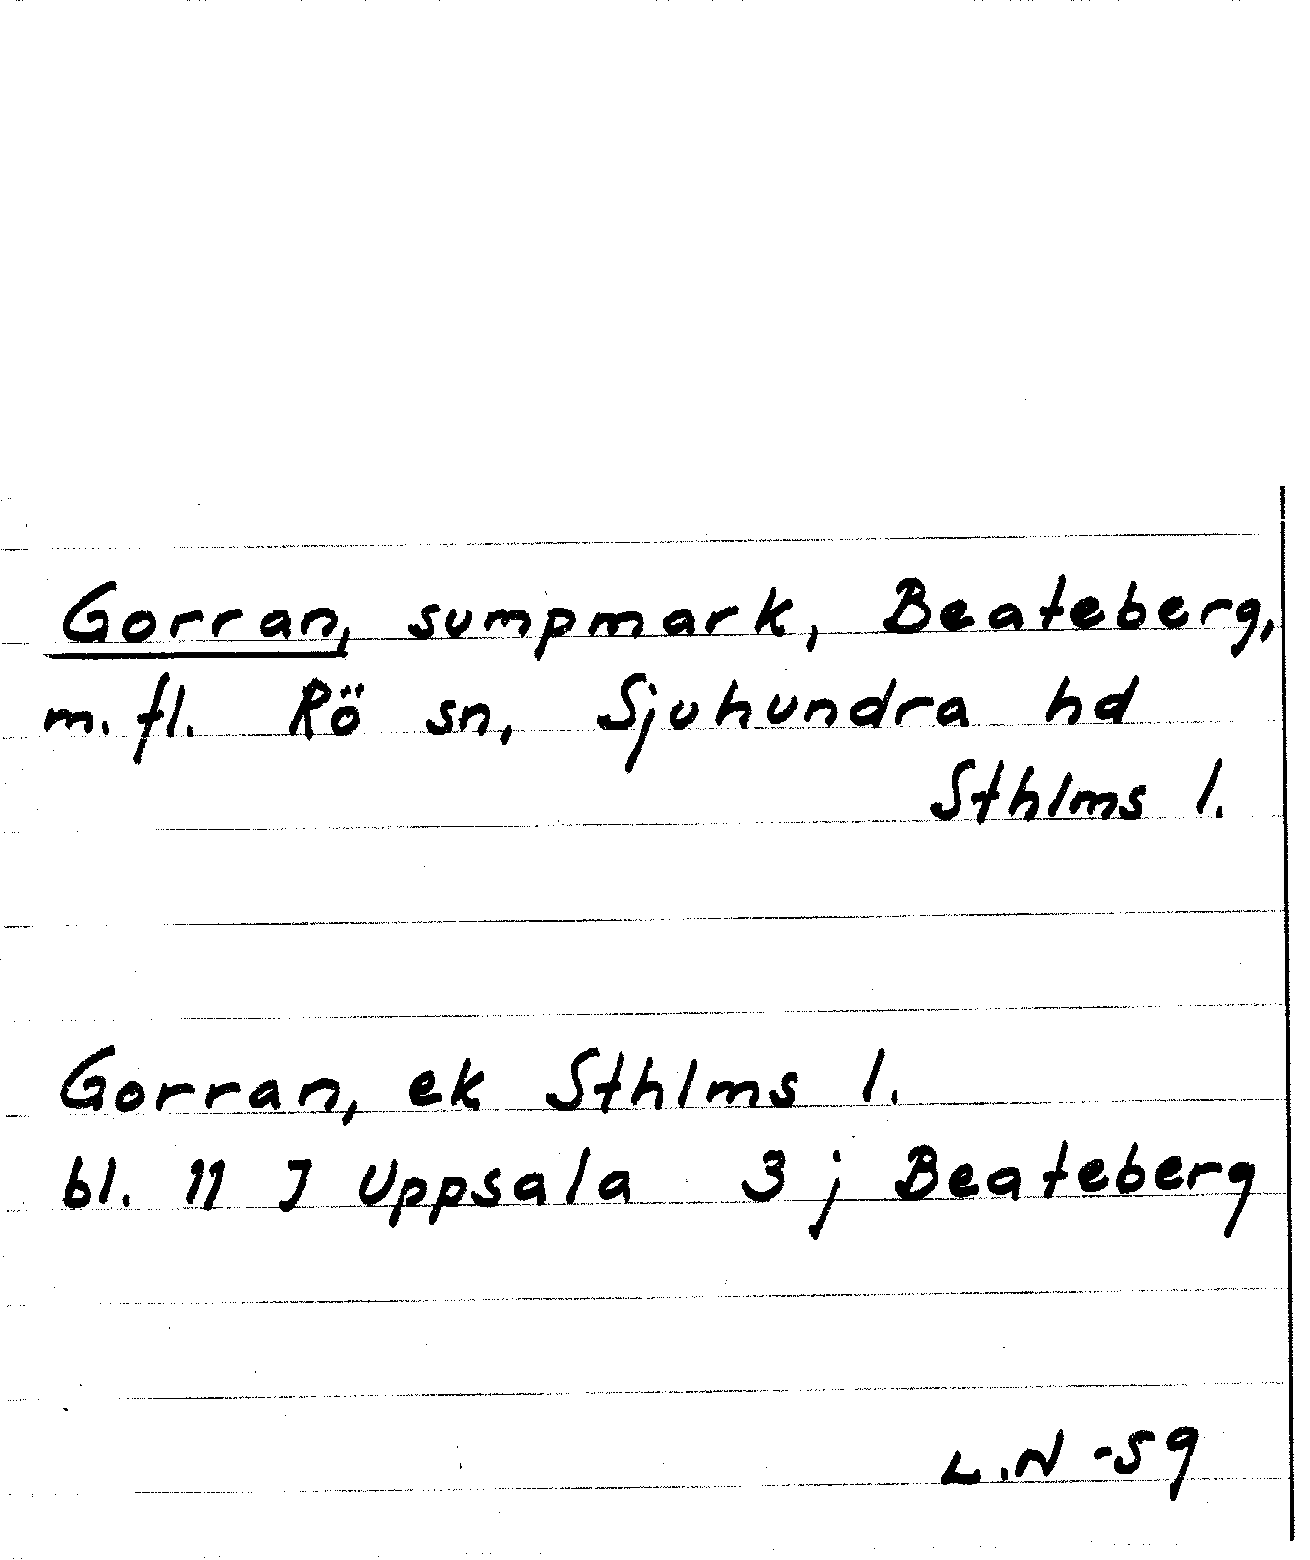 Gorran, sumpmark, Beateberg,
m.fl. Rö sn, Sjuhundra hd
Sthlms l.
Gorran, ek Sthlms l.
bl. 11 J Uppsala 3 j Beateberg
L.N -59